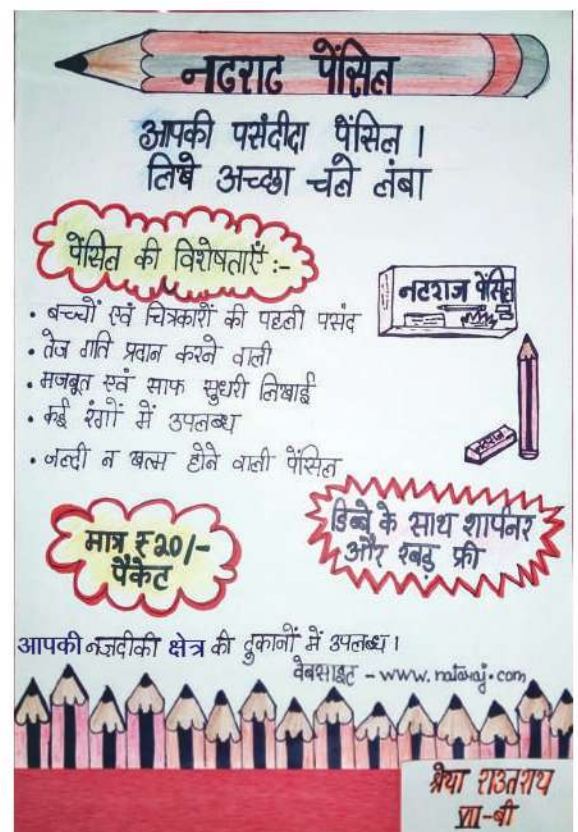 नटराट पेंसिल
आपकी पसंदीदा पेंसिल ।
लिखे अच्छा चले लंबा
पेंसिल की विशेषताएँ :-
• बच्चों एवं चित्रकारों की पहली पसंद
• तेज गति प्रदान करने वाली
• मजबूत एवं साफ सुथरी लिखाई
• कई रंगों में उपलब्ध
• जल्दी न खत्म होने वाली पेंसिल
नटराज पेंसिल
मात्र ₹20/-
पैकेट
डिब्बे के साथ शार्पनर
और रबड़ फ्री
आपकी नज़दीकी क्षेत्र की दुकानों में उपलब्ध ।
वेबसाइट - www.nataraj.com
श्रेया राउतराय
VII-बी